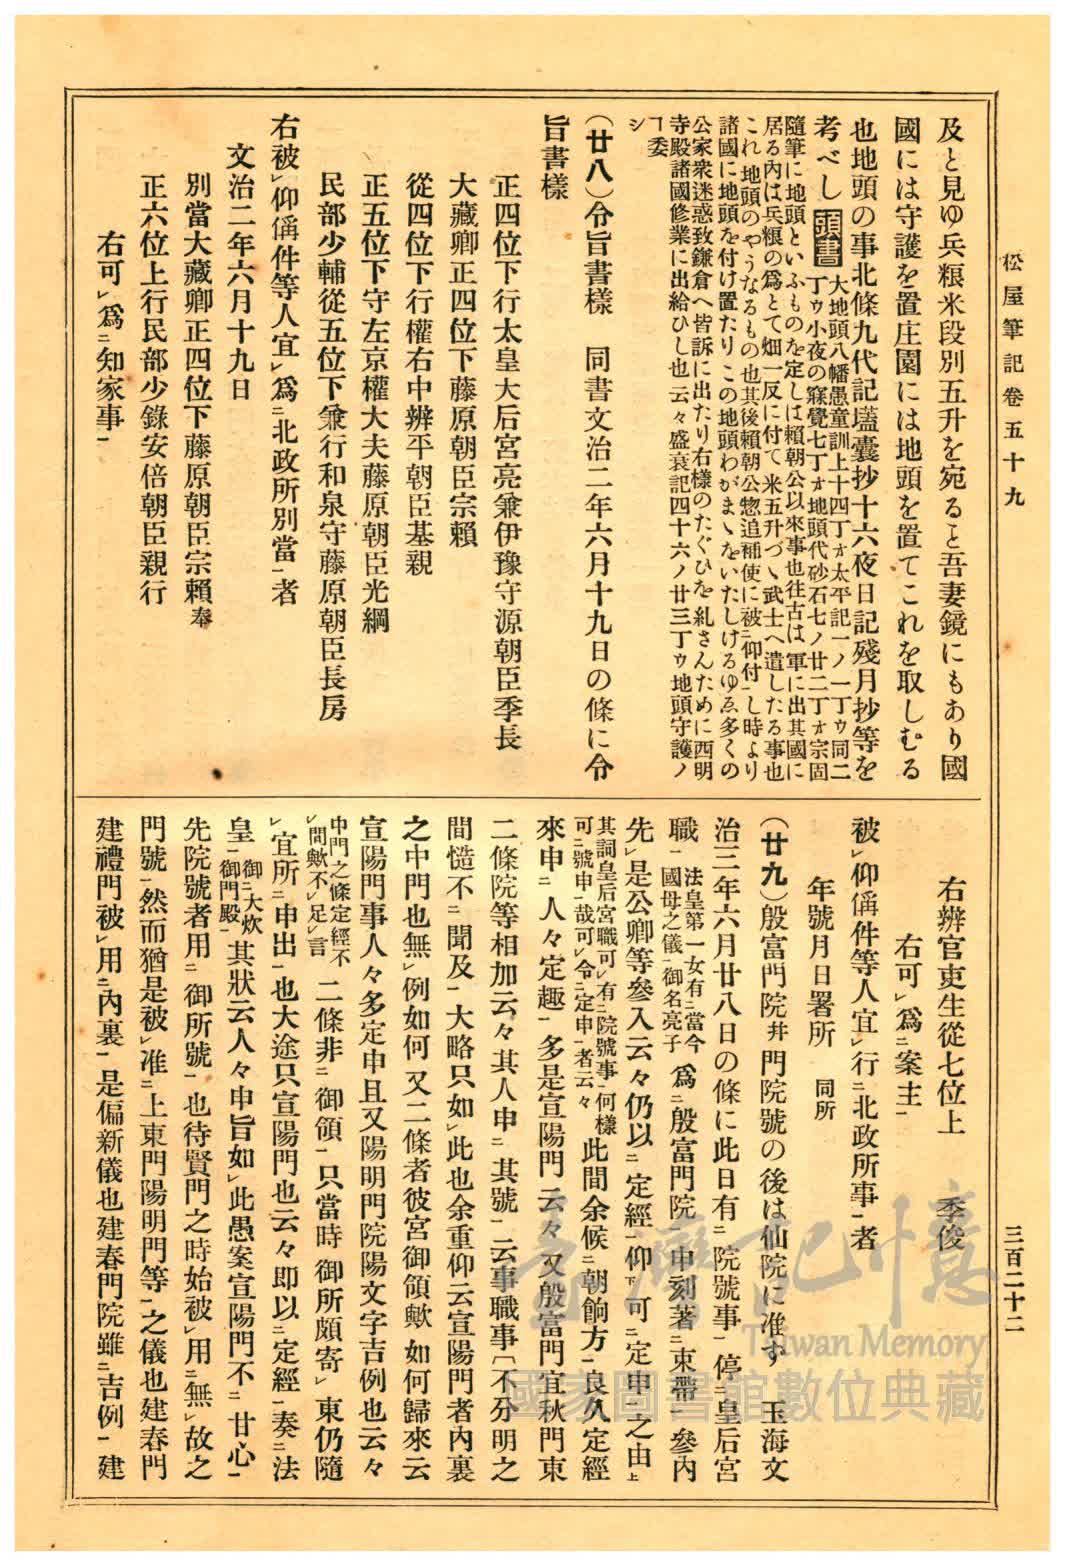 松屋筆記卷五十九
三百二十二
及と見ゆ兵粮米段別五升を宛ると吾妻鏡にもあり國
國には守護を置庄園には地頭を置てこれを取しむる
也地頭の事北條九代記壒囊抄十六夜日記殘月抄等を
考べし頭書大地頭八幡愚童訓上十四丁ォ太平記一ノ一丁ゥ同二
丁ゥ小夜の寐覺七丁ォ地頭代砂石七ノ廿二丁ォ宗固
隨筆に地頭といふものを定しは賴朝公以來事也往古は軍に出其國に
居る內は兵粮の爲とて畑一反に付て米五升づゝ武士へ遣したる事也
これ地頭のやうなるもの也其後賴朝公惣追補使に被㆓仰付㆒し時より
諸國に地頭を付け置たりこの地頭わがまゝをいたしけるゆゑ多くの
公家衆迷惑致鎌倉へ皆訴に出たり右樣のたぐひを糺さんために西明
寺殿諸國修業に出給ひし也云々盛衰記四十六ノ廿三丁ゥ地頭守護ノ
ヿ委
シ
(廿八)令旨書樣　同書文治二年六月十九日の條に令
旨書樣
正四位下行太皇大后宮亮兼伊豫守源朝臣季長
大藏卿正四位下藤原朝臣宗賴
從四位下行權右中辨平朝臣基親
正五位下守左京權大夫藤原朝臣光綱
民部少輔從五位下兼行和泉守藤原朝臣長房
右被㆑仰偁件等人宜㆑爲㆓北政所別當㆒者
文治二年六月十九日
別當大藏卿正四位下藤原朝臣宗賴奉
正六位上行民部少錄安倍朝臣親行
右可㆑爲㆓知家事㆒
右辨官吏生從七位上　季俊
右可㆑爲㆓案主㆒
被㆑仰偁件等人宜㆑行㆓北政所事㆒者
年號月日署所　同所
(廿九)殷富門院幷門院號の後は仙院に淮ず　玉海文
治三年六月廿八日の條に此日有㆓院號事㆒停㆓皇后宮
職㆒法皇第一女有㆓當今
國母之儀㆒御名亮子爲㆓殷富門院㆒申刻著㆓束帶㆒參內
先㆑是公卿等參入云々仍以㆓定經㆒仰㆘可㆓定申㆒之由㆖
其詞皇后宮職可㆑有㆓院號事㆒何樣
可㆓號申㆒哉可㆑令㆓定申㆒者云々此間余候㆓朝餉方㆒良久定經
來申㆓人々定趣㆒多是宣陽門云々又殷富門宜秋門東
二條院等相加云々其人申㆓其號㆒云事職事〔不分明之
間慥不㆓聞及㆒大略只如㆑此也余重仰云宣陽門者內裏
之中門也無㆑例如何又二條者彼宮御領歟如何歸來云
宣陽門事人々多定申且又陽明門院陽文字吉例也云々
中門之條定經不
㆑間歟不㆑足㆑言二條非㆓御領㆒只當時御所頗寄㆑東仍隨
㆑宜所㆓申出㆒也大途只宣陽門也云々卽以㆓定經㆒奏㆓法
皇㆒御㆓大炊
御門殿㆒其狀云人々申旨如㆑此愚案宣陽門不㆓甘心㆒
先院號者用㆓御所號㆒也待賢門之時始被㆑用㆓無㆑故之
門號㆒然而猶是被㆑准㆓上東門陽明門等㆒之儀也建春門
建禮門被㆑用㆓內裏㆒是偏新儀也建春門院雖㆓吉例㆒建
臺灣記憶
Taiwan Memory
國家圖書館數位典藏